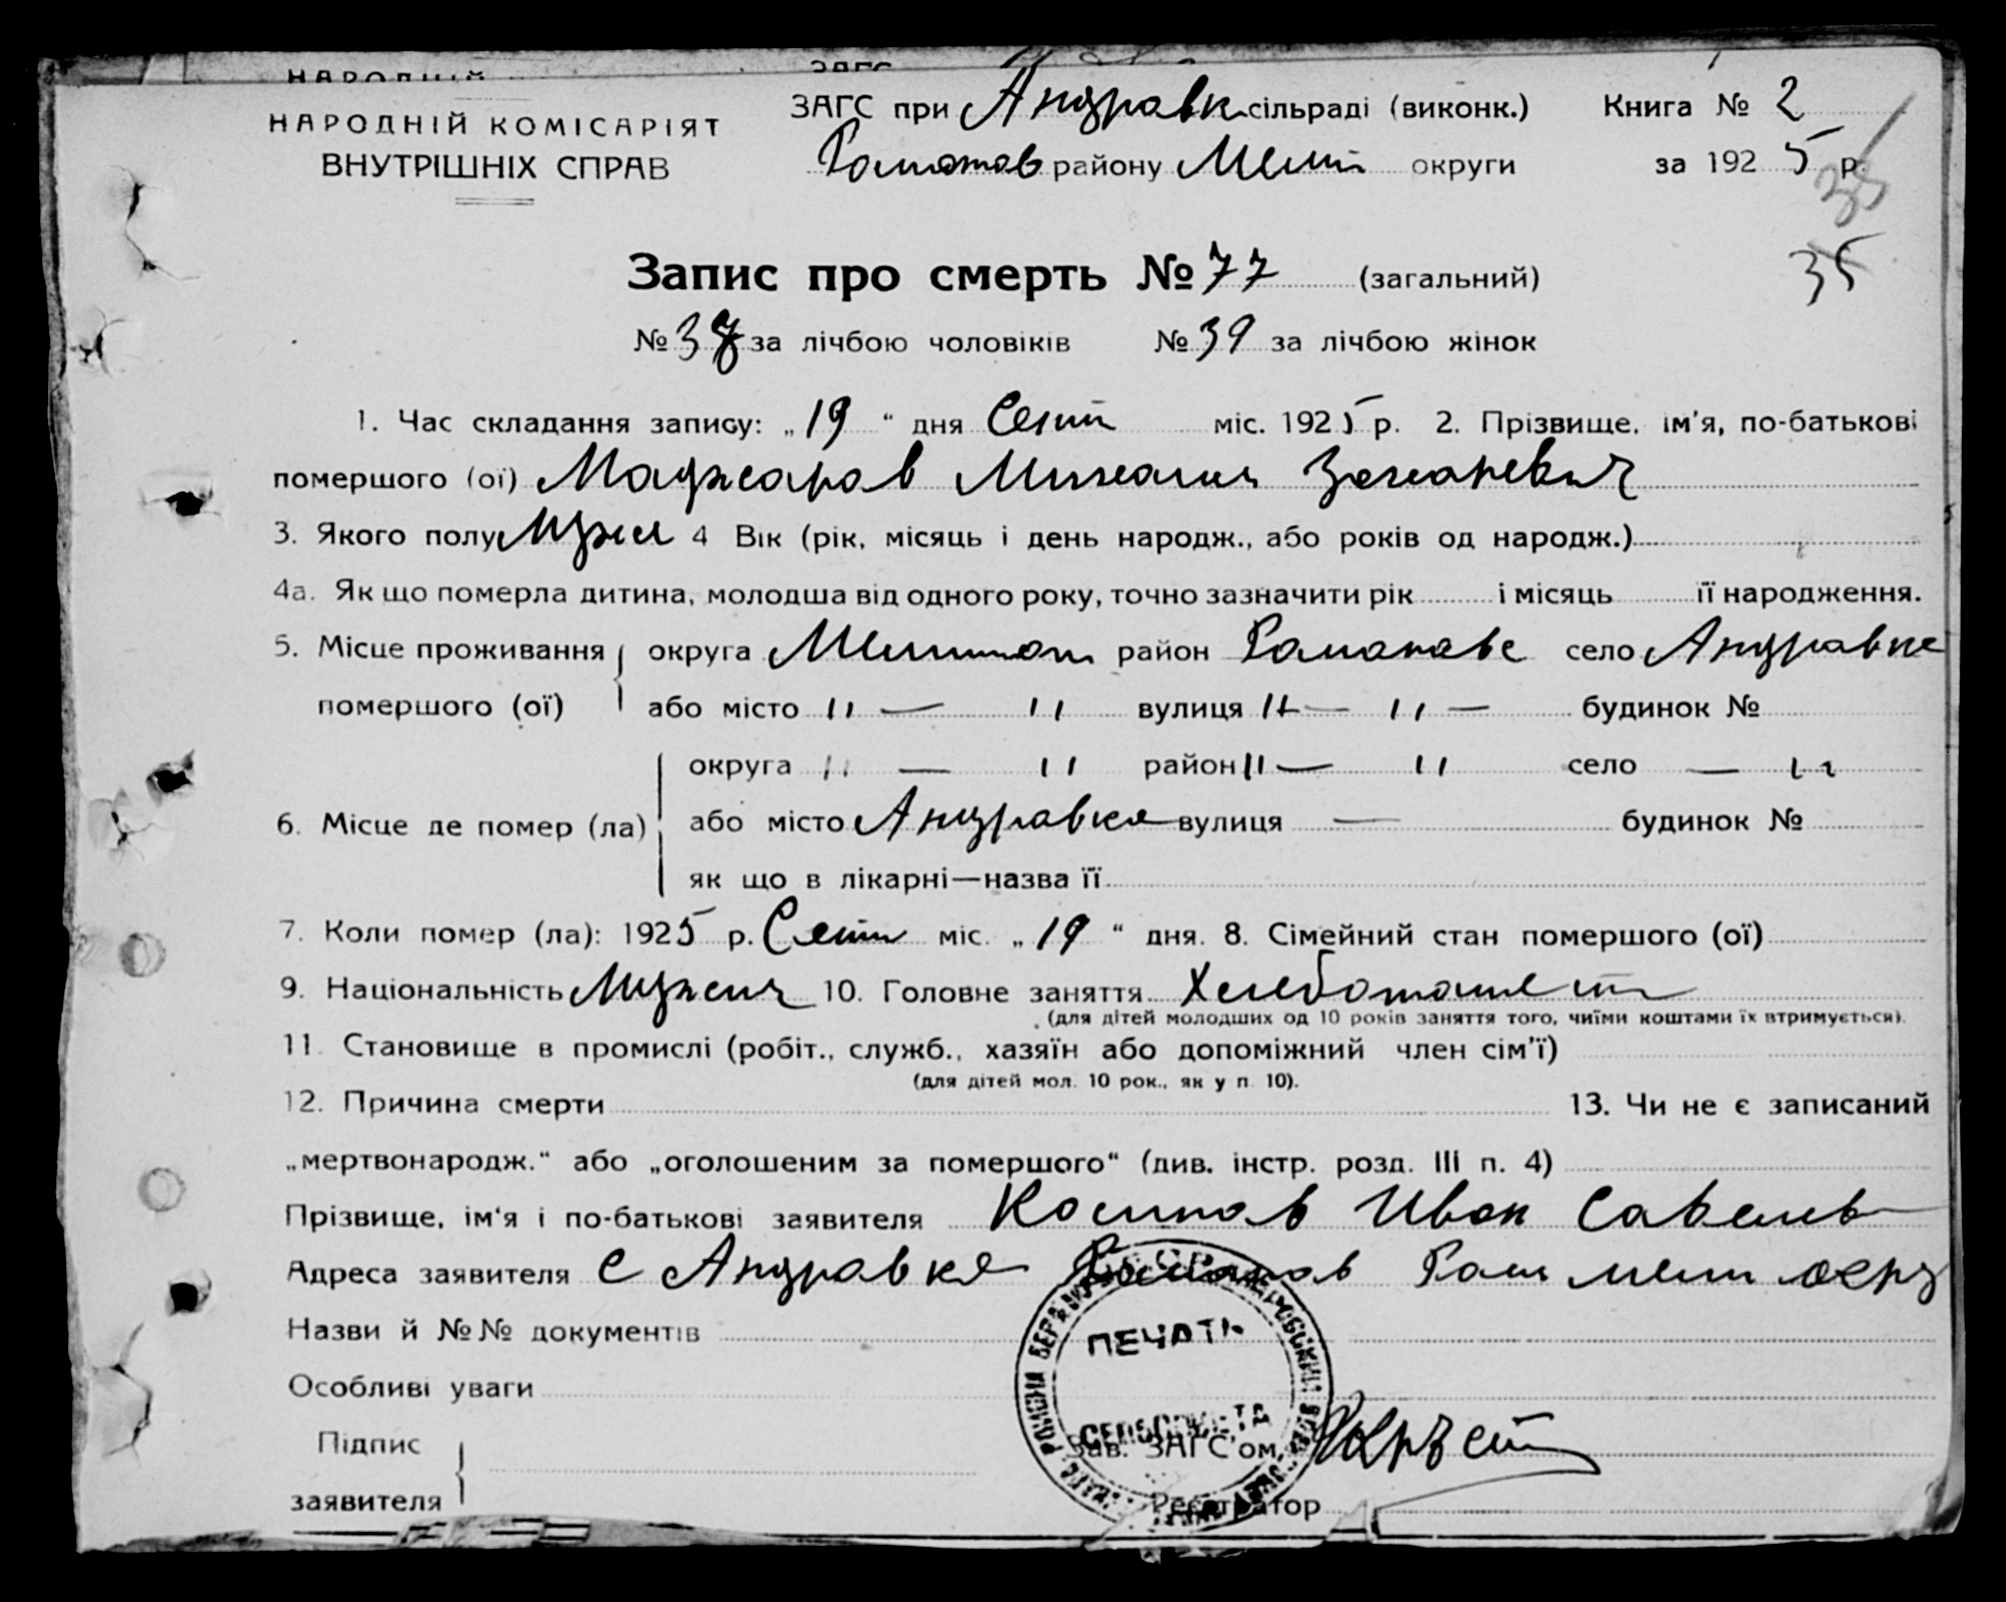 НАРОДНІЙ КОМІСАРІЯТ
ВНУТРІШНІХ СПРАВ
ЗАГС при Андравк сільраді (виконк.) Книга № 2
Романов району Мелит округи за 1925 р.
35
35
Запис про смерть № 77 (загальний)
№ 38 за лічбою чоловіків № 39 за лічбою жінок
1. Час складання запису: „19“ дня Сент міс. 1925 р. 2. Прізвище, ім'я, по-батькові
помершого (ої) Маджаров Михаил Захаревич
3. Якого полу Мужск 4 Вік (рік, місяць і день народж., або років од народж.)
4а. Як що померла дитина, молодша від одного року, точно зазначити рік і місяць її народження.
5. Місце проживання округа Мелитоп район Романовс село Андравке
помершого (ої) або місто " — " вулиця " — " — будинок №
округа " — " район " — " село — "
6. Місце де помер (ла) або місто Андравке вулиця — будинок №
як що в лікарні—назва її
7. Коли помер (ла): 1925 р. Сент міс. „19“ дня. 8. Сімейний стан помершого (ої)
9. Національність 10. Головне заняття
(для дітей молодших од 10 років заняття того, чиїми коштами їх втримується).
11. Становище в промислі (робіт., служб., хазяїн або допоміжний член сім'ї)
(для дітей мол. 10 рок., як у п. 10).
12. Причина смерти 13. Чи не є записаний
„мертвонародж.“ або „оголошеним за помершого“ (див. інстр. розд. III п. 4)
Прізвище, ім'я і по-батькові заявителя Иван Савелев
Адреса заявителя С Андравке Мелит окру
Назви й №№ документів
Особливі уваги
ПЕЧАТЬ
СЕЛЬСОВЕТА
Підпис
заявителя
Зав. ЗАГС'ом
Реєстратор